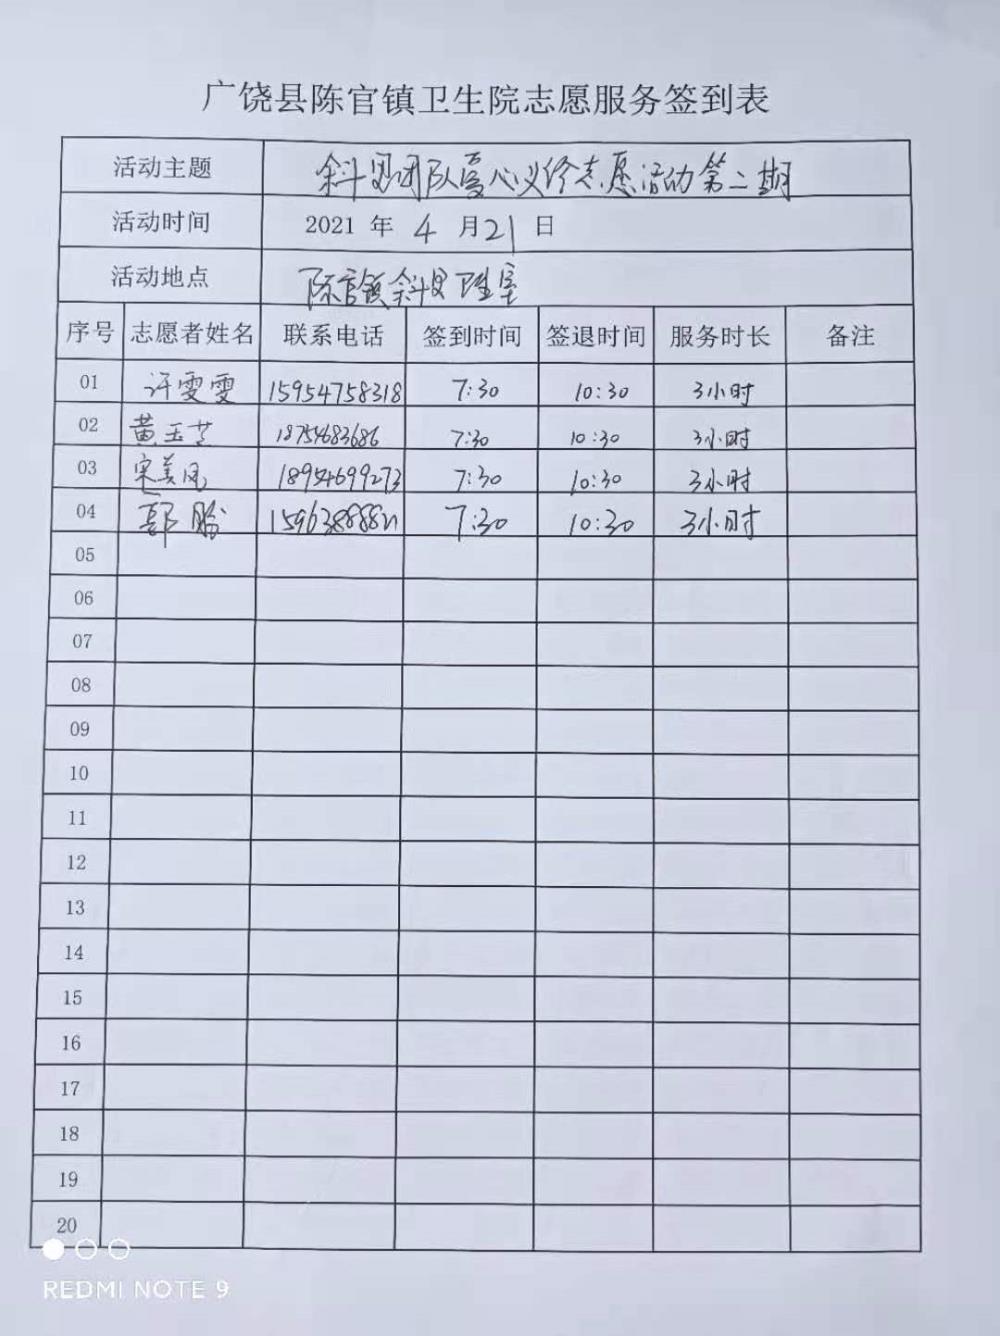 广饶县陈官镇卫生院志愿服务签到表
活动主题 团队爱心义诊志愿活动第二期
活动时间 2021 年 4 月 21 日
活动地点 陈官镇
序号 志愿者姓名 联系电话 签到时间 签退时间 服务时长 备注
01 许雯雯 15954758318 7:30 10:30 3小时
02 黄玉芝 18754683686 7:30 10:30 3小时
03 宋美凤 18954699273 7:30 10:30 3小时
04 郭 7:30 10:30 3小时
05
06
07
08
09
10
11
12
13
14
15
16
17
18
19
20
REDMI NOTE 9